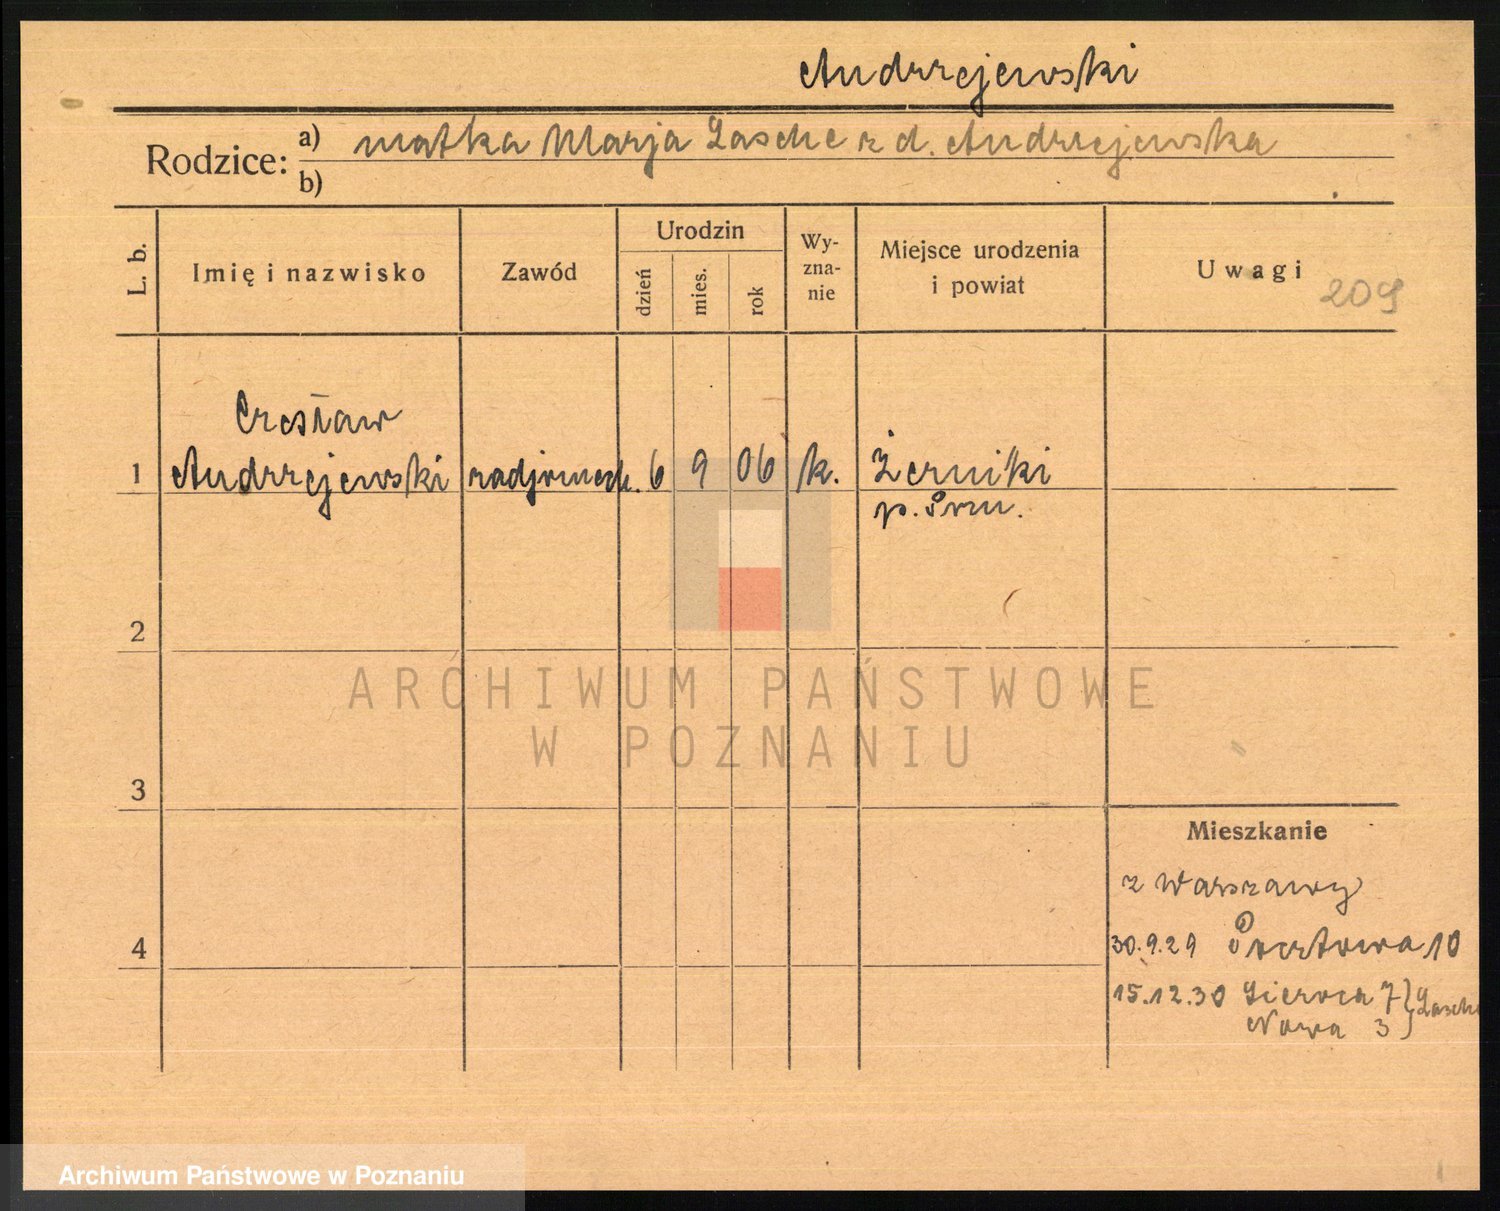 Andrzejewski
Rodzice: a) matka Marja Lasche z d. Andrzejewska
b)
L. b.
Imię i nazwisko
Zawód
Urodzin
dzień
mies.
rok
Wy-
zna-
nie
Miejsce urodzenia
i powiat
Uwagi
209
Czesław
1 Andrzejewski radjomech. 6 9 06 k. Żerniki
p. Śrem.
2
ARCHIWUM PAŃSTWOWE
W POZNANIU
3
Mieszkanie
z Warszawy
4
30.9.29 Pocztowa 10
15.12.30 7 } Lasche
Nowa 3
Archiwum Państwowe w Poznaniu